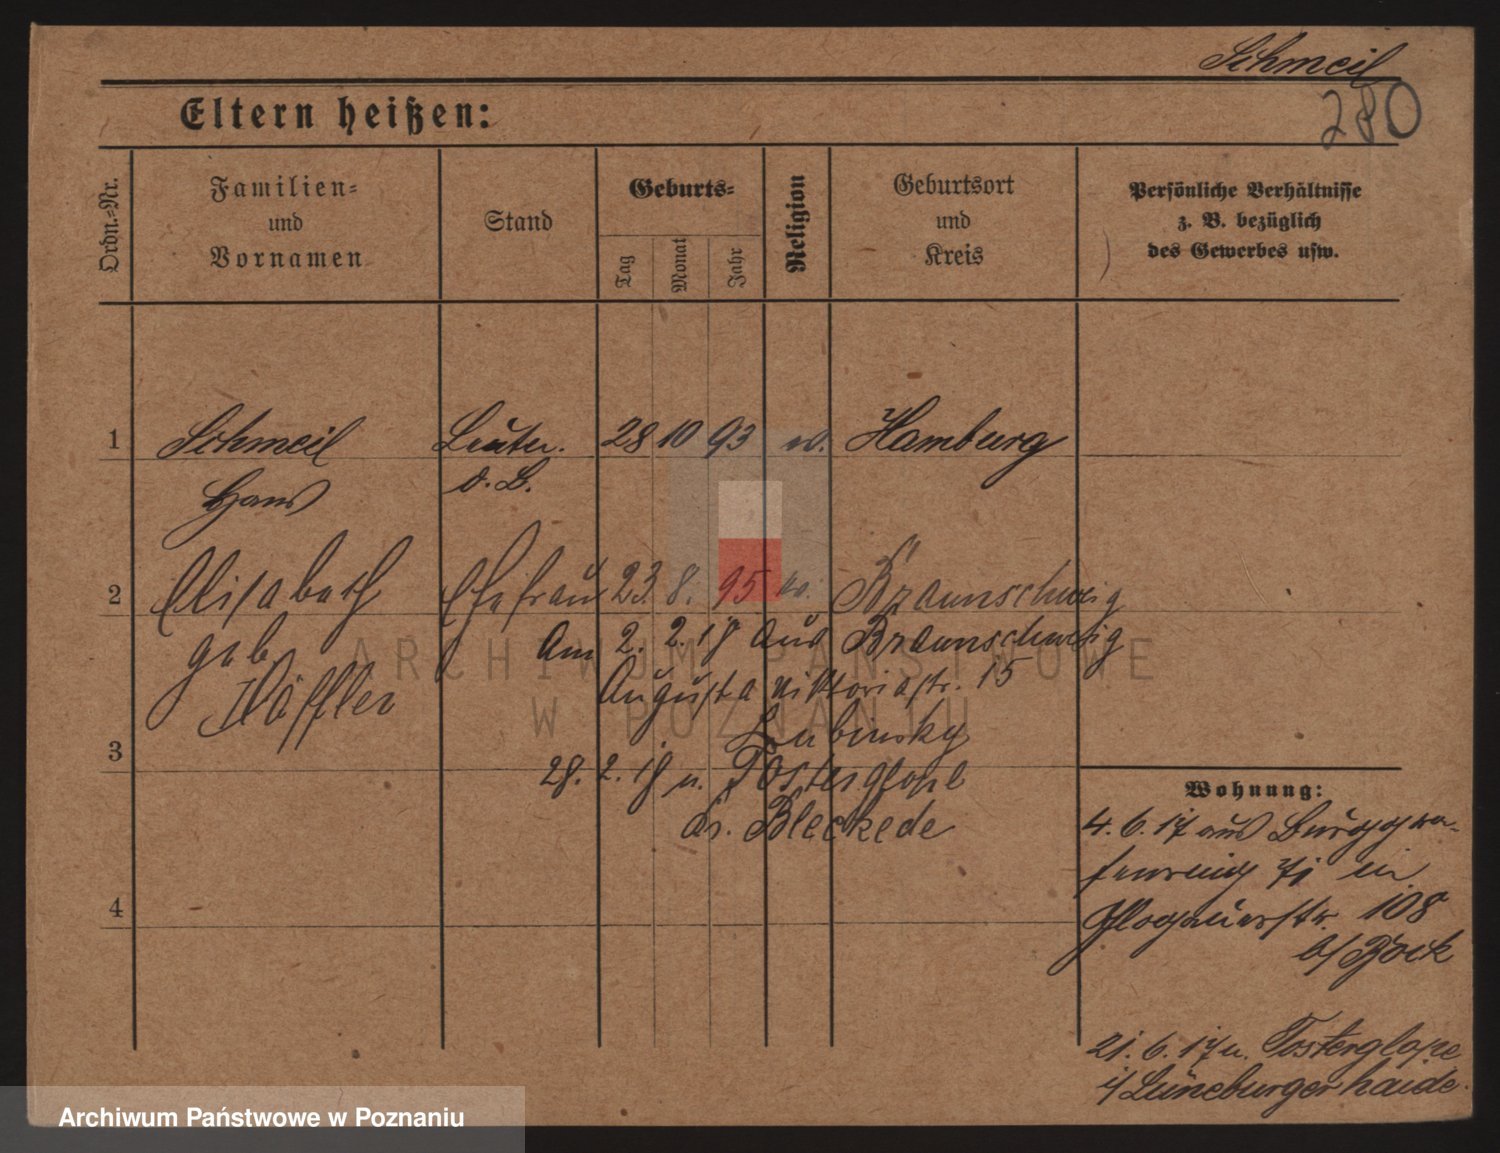 Schmeil
280
Eltern heißen:
Ordn.-Nr.
Familien-
und
Vornamen
Stand
Geburts-
Tag
Monat
Jahr
Religion
Geburtsort
und
Kreis
Persönliche Verhältnisse
z. B. bezüglich
des Gewerbes usw.
1 Schmeil Leutn. 28 10 93 ev. Hamburg
Hans d. L.
2 Elisabeth Ehefrau 23. 8. 95 ev. Braunschweig
geb. Am 2. 2. 18 aus Braunschweig
Löffler Augusta Viktoriastr. 15
Lubinsky
3
28. 2. 18 n. Tosterglope
Kr. Bleckede
4
Wohnung:
4. 6. 17 aus Burggra-
fenring 7I in
Glogauerstr. 108
b/ Bock
21. 6. 17 n. Tosterglope
i/ Lüneburgerhaide.
ARCHIWUM PAŃSTWOWE
W POZNANIU
Archiwum Państwowe w Poznaniu